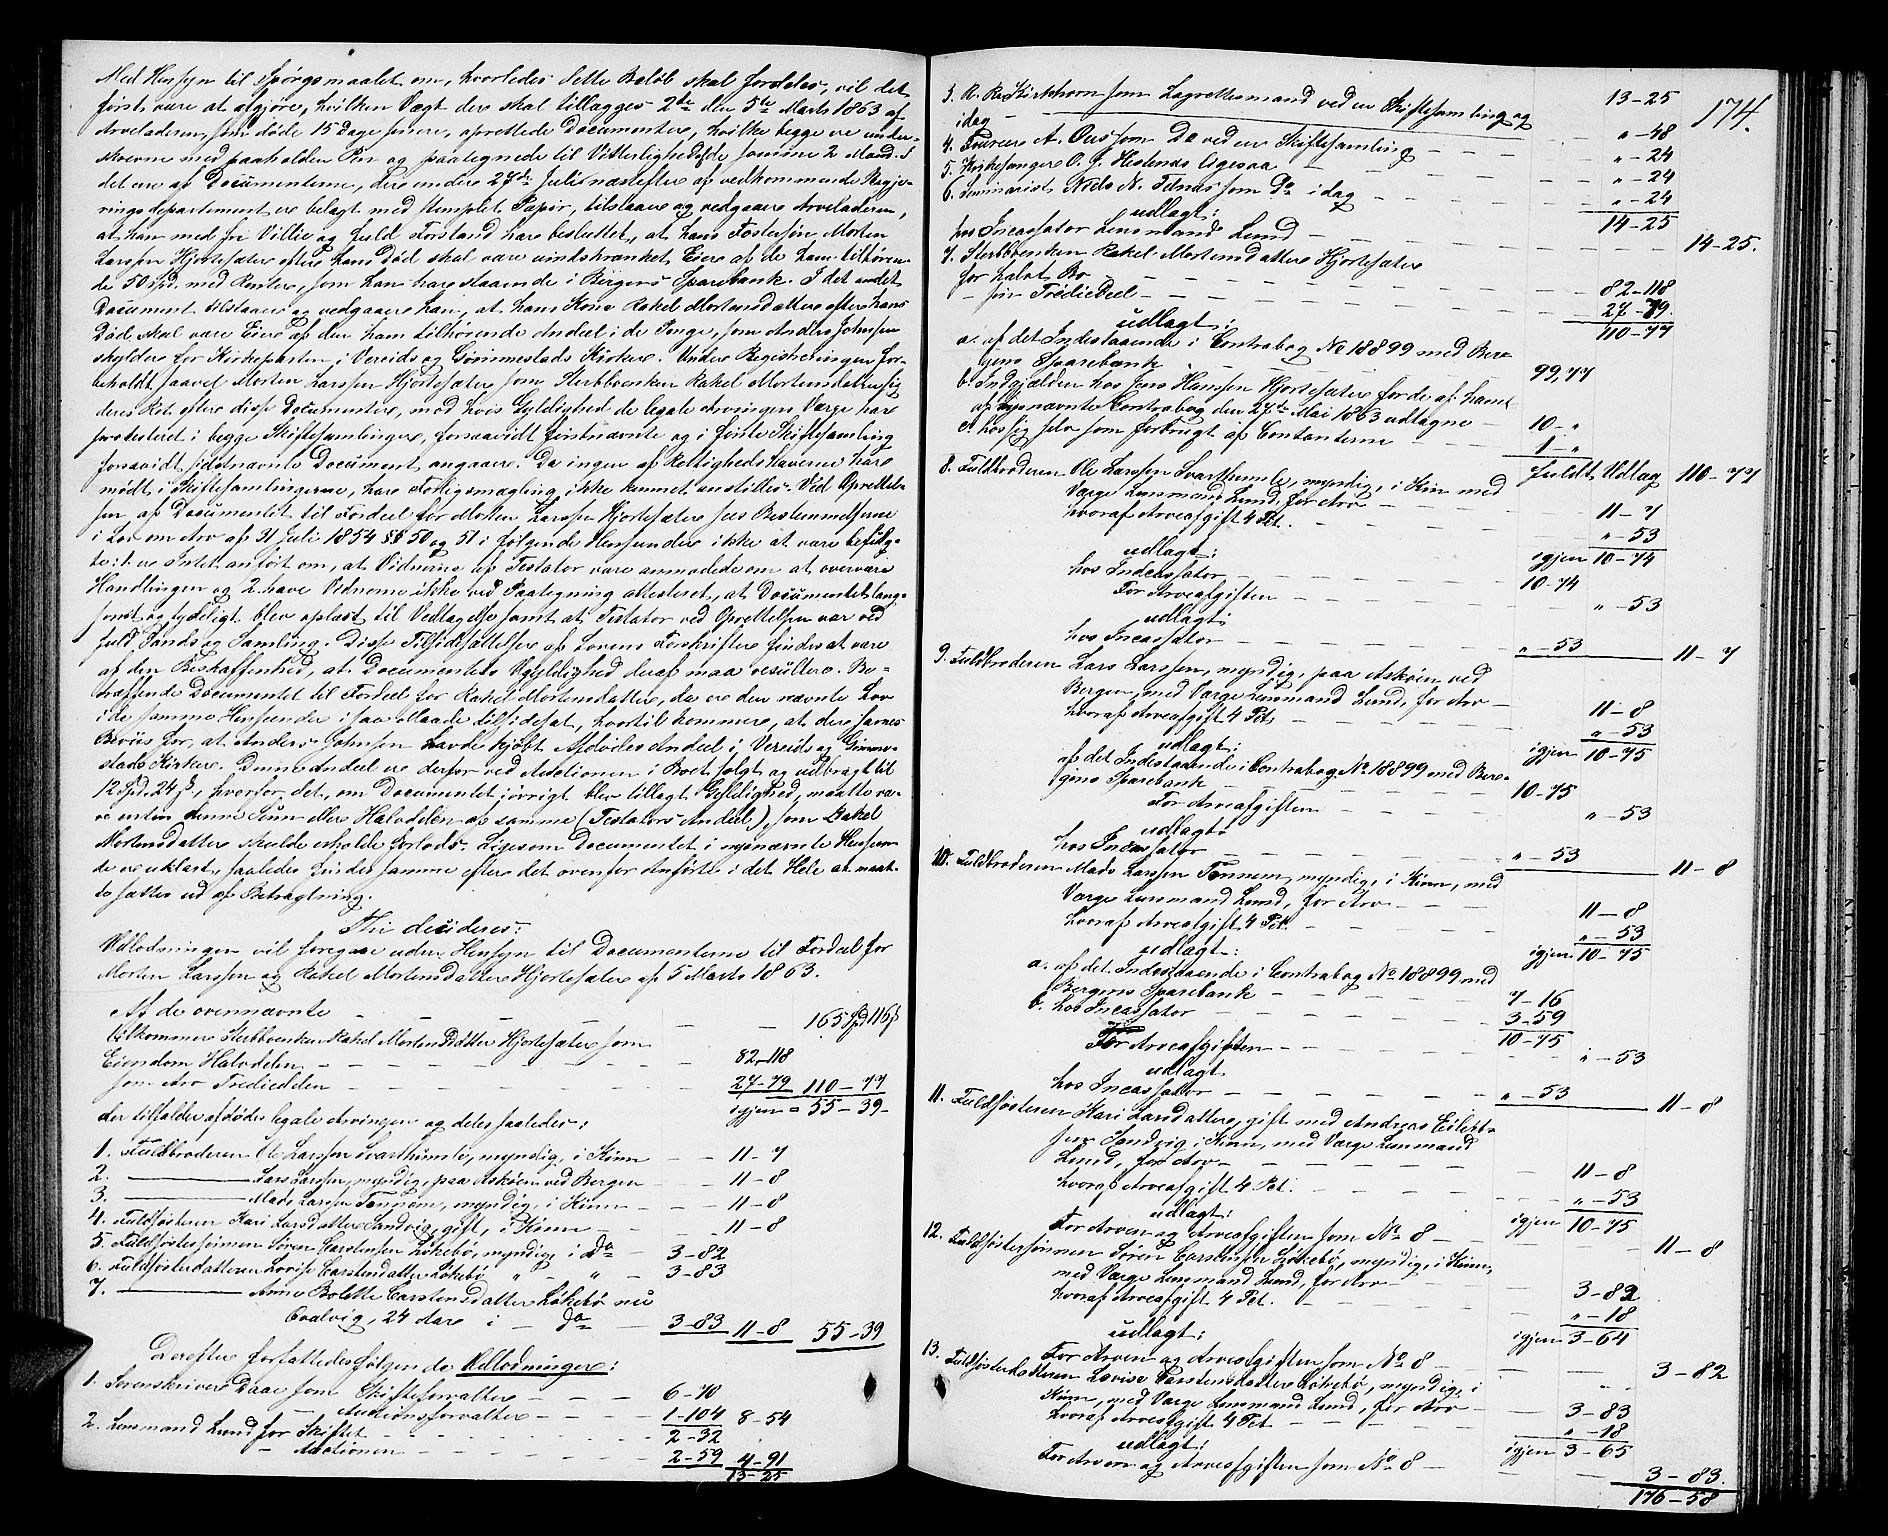 Med Hensyn til Spørgsmaalet om, hvorledes dette Beløb skal fordeles, vil det
først være at afgjøre, hvilken Vægt der skal tillægges 2de den 5te Marts 1863 af
Arveladeren, som døde 15 Dage senere, oprettede Documenter, hvilke begge ere under-
skrevne med paaholden Pen og paategnede til Vitterlighed af de samme 2 Mænd. I
det ene af Documenterne, der under 27de Juli næstefter af vedkommende Regje-
ringsdepartement er belagt med stemplet Papir, tilstaaer og vedgaaer Arveladeren,
at han med fri Villie og fuld Forstand har besluttet, at hans Fostersøn Morten
Larssen Hjortesæter efter hans Død skal være uindskrænket Eier af de ham tilhøren-
de 50 Spd. med Renter, som han har staaende i Bergens Sparebank. I det andet
Document tilstaaer og vedgaaer han, at hans Kone Rakel Mortensdatter efter hans
Død skal være Eier af den ham tilhørende Andeel i de Penge, som Anders Johnsen
skylder for Kirkeparten i Vereids og Gimmestads Kirker. Under Registreringen for-
beholdt saavel Morten Larssen Hjortesæter som Sterbboenken Rakel Mortensdatter sig
deres Ret efter disse Documenter, mod hvis Gyldighed de legale Arvingers Værge har
protesteret i begge Skiftesamlinger, forsaavidt førstnævnte og i første Skiftesamling
forsavidt sidstnævnte Document angaaer. Da ingen af Rettighedshaverne har
mødt i Skiftesamlingerne, har Forligsmægling ikke kunnet anstilles. Ved Oprettel-
sen af Documentet til Fordeel for Morten Larssen Hjortesæter sees Bestemmelserne
i Lov om Arv af 31 Juli 1854 §§ 50 og 51 i følgende Henseender ikke at være befulg-
te: 1. er Intet anført om, at Vidnerne af Testator vare anmodede om at overvære
Handlingen og 2. have Vidnerne ikke ved Paategning attesteret, at Documentet lang-
somt og tydeligt blev oplæst til Vedtagelse samt at Testator ved Oprettelsen var ved
fuld Sands og Samling. Disse Tilsidesættelser af Lovens Forskrifter findes at være
af den Beskaffenhed, at Documentets Ugyldighed deraf maa resultere. Be-
træffende Documentet til Fordeel for Rakel Mortensdatter, da ere den nævnte Lov
i de samme Henseender i saa Maade tilsidesat, hvortil kommer, at der savnes
Beviis for, at Anders Johnsen havde kjøbt Afdødes Andeel i Vereids og Gimme-
stads Kirker. Denne Andeel er derfor ved Auctionen i Boet solgt og udbragt til
12 Spd. 24 s, hvorfor det, om Documentet iøvrigt blev tillagt Gyldighed, maatte væ-
re enten denne Sum eller Halvdelen af samme (Testators Andeel), som Rakel
Mortensdatter skulde erholde forlods. Ligesom Documentet i nysnævnte Henseen-
de er uklart, saaledes findes samme efter det ovenfor Anførte i det Hele at maat-
te sættes ud af Betragtning.
Thi decideres:
Udlodningen vil foregaae uden Hensyn til Documenterne til Fordeel for
Morten Larssen og Rakel Mortensdatter Hjortesæter af 5 Marts 1863.
Af de ovennævnte – – – 165 Spd 116 s
tilkommer Sterbboenken Rakel Mortensdatter Hjortesæter som
Eiendom Halvdelen – – 82-118
som Arv Trediedelen – – 27-79 110-77
der tilfalder afdødes legale Arvinger og deles saaledes: igjen = 55-39
1. Fuldbroderen Ole Larssen Svarthumle, myndig, i Kinn – – 11-7
2. ——— Lars Larssen, myndig, paa Askøen ved Bergen – – 11-8
3. ——— Mads Larssen Tonnem, myndig, i Kinn – – 11-8
4. Fuldsøsteren Kari Larsdatter Sandvig, gift, i Kinn – – 11-8
5. Fuldsøstersønnen Søren Carstensen Løkebø, myndig, i Do – 3-82
6. Fuldsøsterdatteren Lovise Carstensdatter Løkebø „ – „ – 3-83
7. ——— Anne Bolette Carstensdatter Løkebø nu
Qvalvig, 24 Aar i – Do – 3-83 11-8 55-39
Derefter forfattedes følgende Udlodninger:
1. Sorenskriver Daae som Skifteforvalter – – 6-70
– Auctionsforvalter – – 1-104 8-54
2. Lensmand Lund for Skiftet – – 2-32
– Auctionen – – 2-59 4-91
13-25
174.
13-25
3. R. R. Kirkhorn som Lagrettesmand ved en Skiftesamling og
idag – „-48
4. A. Aas som Do ved en Skiftesamling – – „-24
5. Kirkesanger O. J. Hestenes – – „-24
6. Seminarist Niels N. som Do idag – – „-24
udlagt: 14-25
hos Incassator Lensmand Lund – – 14-25.
7. Sterbboenken Rakel Mortensdatter Hjortesæter
for halvt Bo – – 82-118
– sin Trediedeel – – 27-79.
udlagt: 110-77
a. af det Indestaaende i Contrabog No 18899 med Ber-
gens Sparebank – 99,77
b. Indgjælden hos Jens Hanssen Hjortesæter for de af ham
af nysnævnte Contrabog den 27de Mai 1863 udtagne – 10-„
c. hos sig selv som forbrugt af Contanterne – 1-„
fuldt Udlæg 110-77
8. Fuldbroderen Ole Larssen Svarthumle, myndig, i Kinn med
Værge Lensmand Lund, for Arv – – 11-7
hvoraf Arveafgift 4 Pct. – – „-53
udlagt: igjen 10-74
hos Incassator – – 10-74
For Arveafgiften – – „-53
udlagt:
hos Incassator – – „-53 11-7
9. Fuldbroderen Lars Larssen, myndig, paa Askøen ved
Bergen, med Værge Lensmand Lund, for Arv – 11-8
hvoraf Arveafgift 4 Pct. – – „-53
udlagt: igjen 10-75
af det Indestaaende i Contrabog No 18899 med Ber-
gens Sparebank – – 10-75
For Arveafgiften – – „-53
udlagt:
hos Incassator – – „-53 11-8
10. Fuldbroderen Mads Larssen Tonnem, myndig, i Kinn, med
Værge Lensmand Lund, for Arv – – 11-8
hvoraf Arveafgift 4 Pct. – – „-53
udlagt: igjen 10-75
a. af det Indestaaende i Contrabog No 18899 med
Bergens Sparebank – – 7-16
b. hos Incassator – – 3-59
10-75
For Arveafgiften – – „-53
udlagt
hos Incassator – – „-53 11-8
11. Fuldsøsteren Kari Larsdatter, gift med Andreas Eilert-
sen Sandvig i Kinn, med Værge Lensmand
Lund, for Arv – – 11-8
hvoraf Arveafgift 4 Pct. – – „-53
udlagt: igjen 10-75
For Arven og Arveafgiften som No 8 – – 11-8
12. Fuldsøstersønnen Søren Carstensen Løkebø, myndig, i Kinn,
med Værge Lensmand Lund, for Arv – 3-82
hvoraf Arveafgift 4 Pct. – – „-18
udlagt: igjen 3-64
For Arven og Arveafgiften som No 8 – – 3-82
13. Fuldsøsterdatteren Lovise Carstensdatter Løkebø, myndig, i
Kinn, med Værge Lensmand Lund, for Arv – 3-83
hvoraf Arveafgift 4 Pct – – „-18
udlagt: igjen 3-65
For Arven og Arveafgiften som No 8 – – 3-83.
176-58